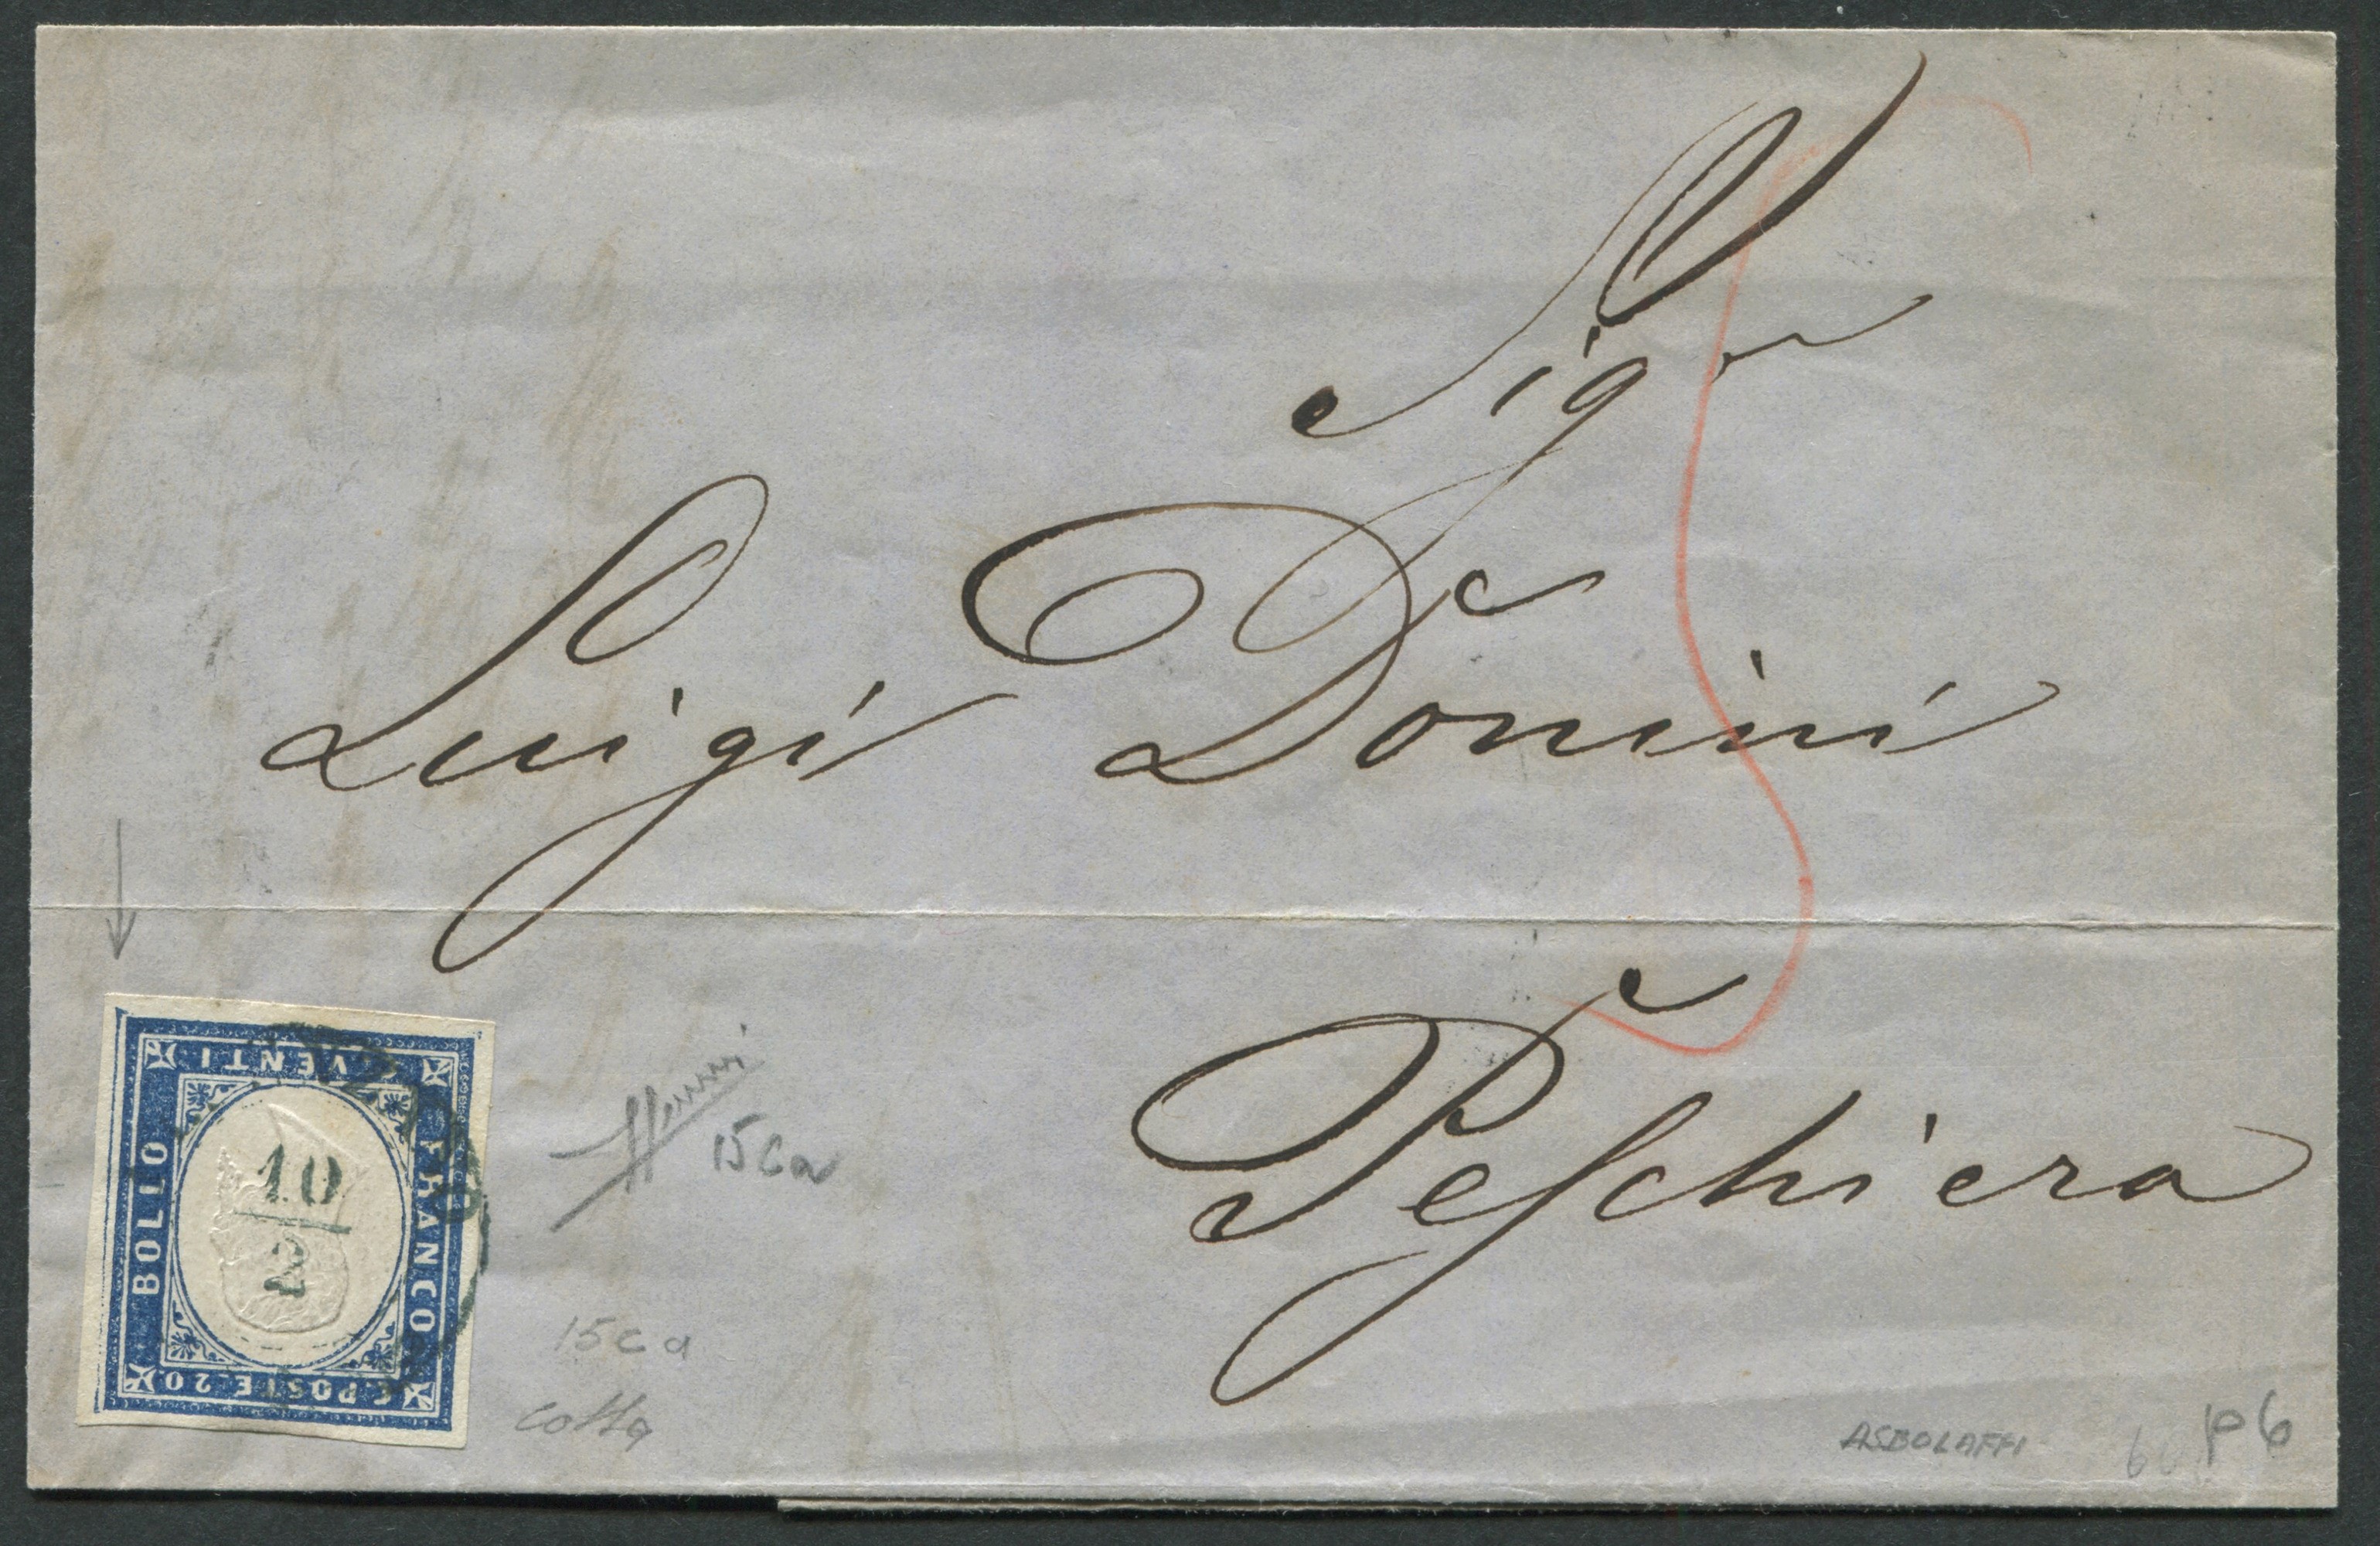 Sigr
Luigi Donini
Peschiera
C. VENTI
BOLLO
FRANCO
C. POSTE. 20
10
2
15Ca
15ca
ASBOLAFFI
P6
5